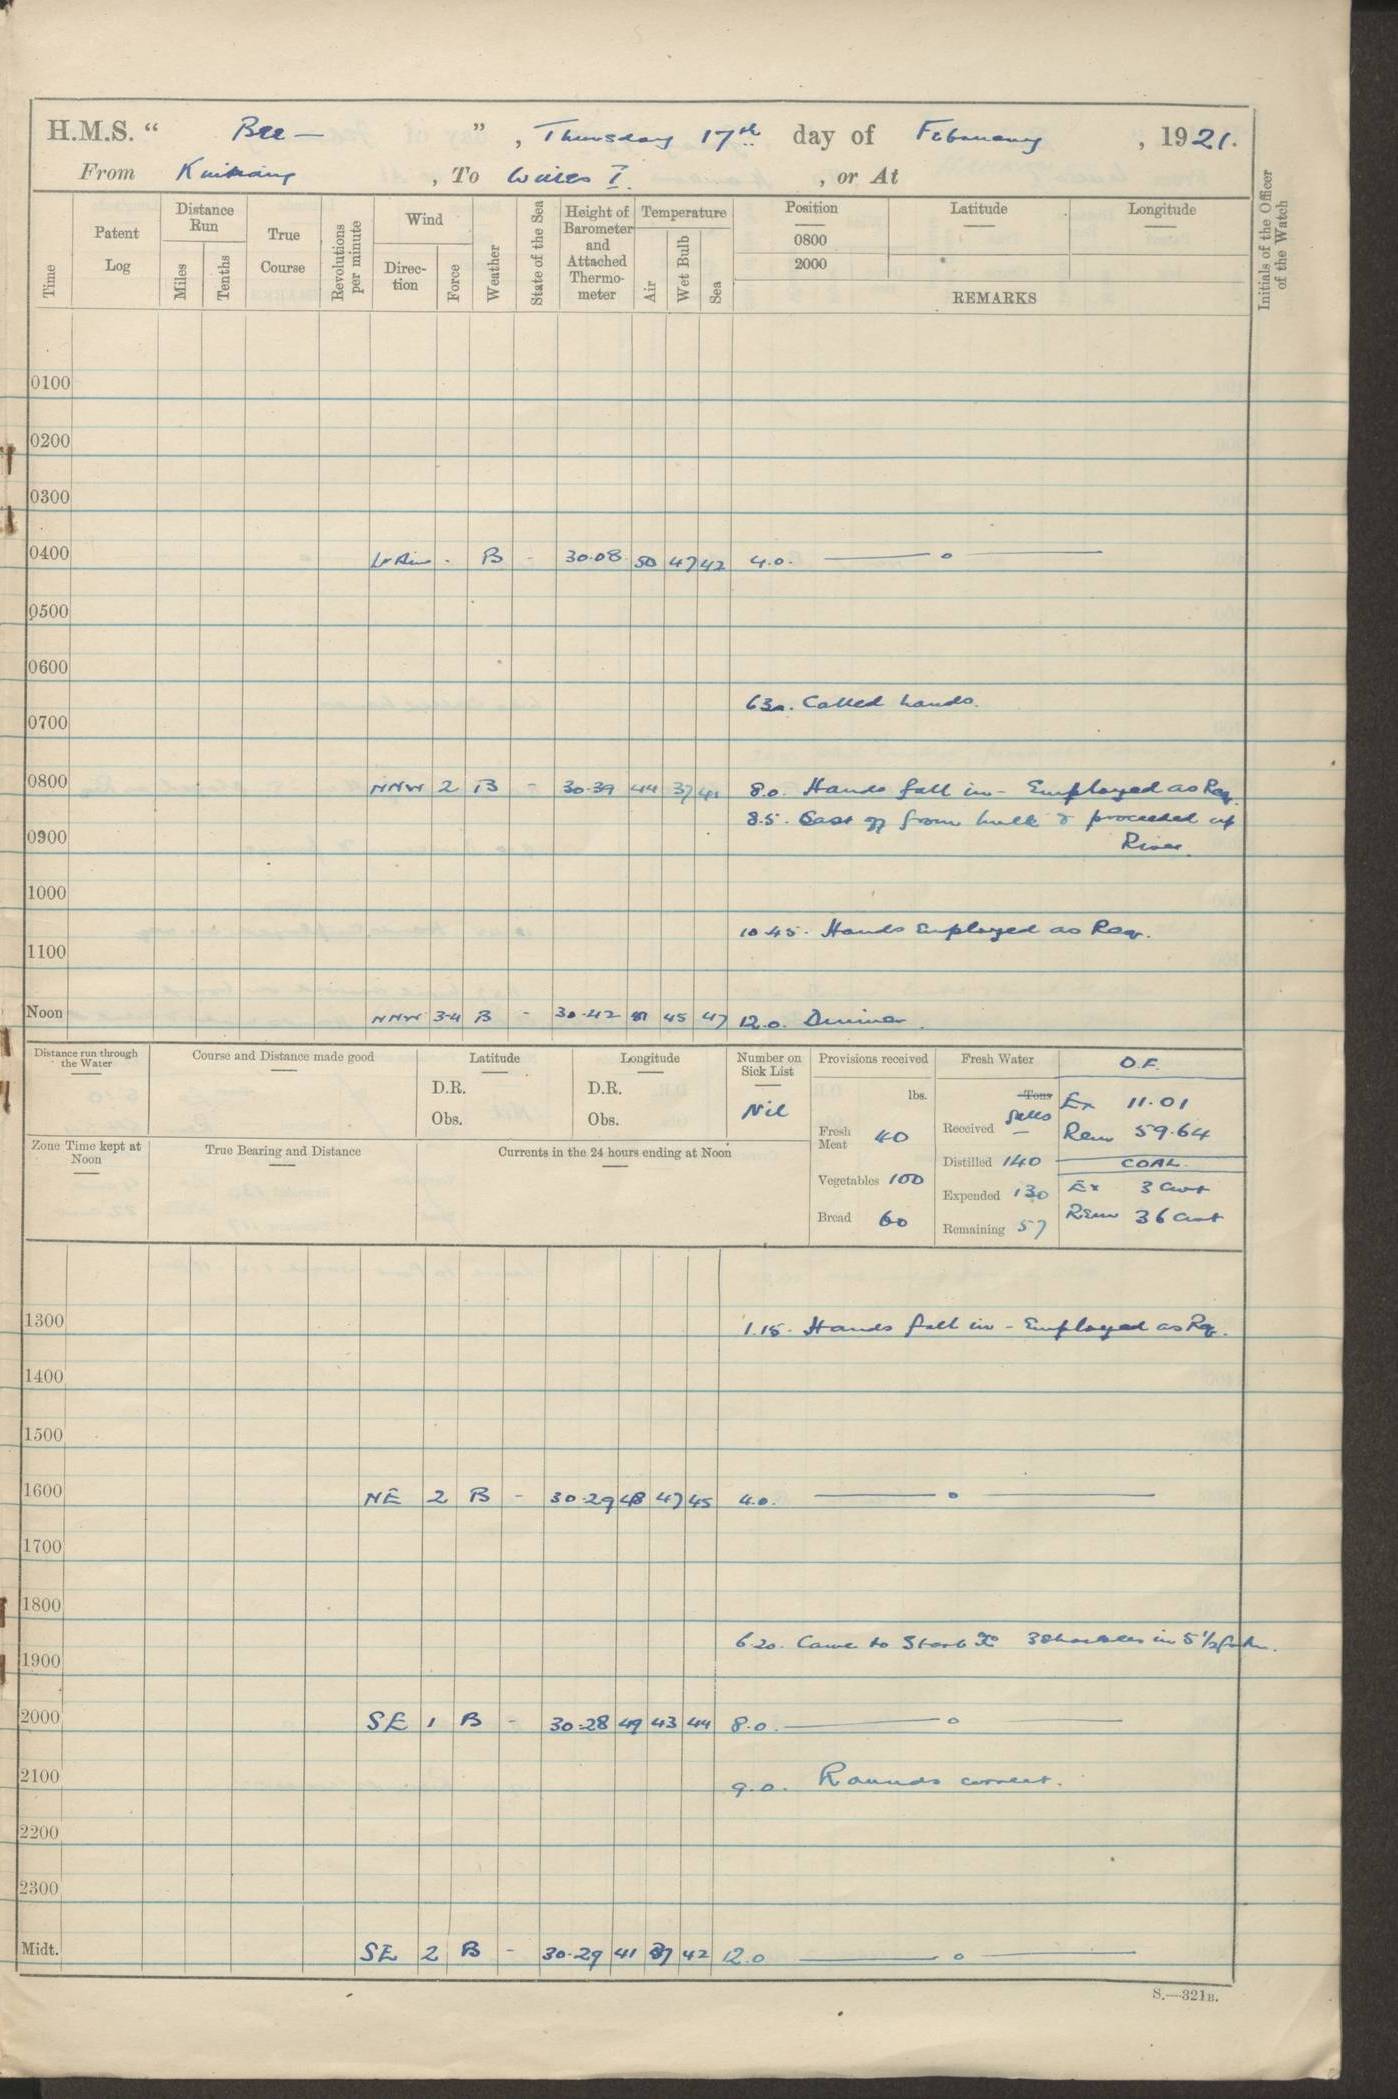 H.M.S. “ Bee — ” , Thursday 17th day of February , 1921.
From Kiukiang , To Wilds I. , or At
Time
Patent Log
Distance Run
Miles
Tenths
True Course
Revolutions per minute
Wind
Direction
Force
Weather
State of the Sea
Height of Barometer and Attached Thermometer
Temperature
Air
Wet Bulb
Sea
Position
0800
2000
Latitude
Longitude
REMARKS
Initials of the Officer of the Watch
0100
0200
0300
0400 . B - 30.08 50 47 42 4.0. — o —
0500
0600
630. Called hands.
0700
0800 NNW 2 B - 30.39 44 37 41 8.0. Hands fall in - Employed as Req.
8.5. Cast off from hulk & proceeded up
0900 River.
1000
10.45. Hands Employed as Req.
1100
Noon NNW 3-4 B - 30.42 45 47 12.0. Dinner.
Distance run through the Water
Course and Distance made good
Latitude
D.R.
Obs.
Longitude
D.R.
Obs.
Number on Sick List
Nil
Provisions received
lbs.
Fresh Meat 40
Vegetables 100
Bread 60
Fresh Water
Tons
galls
Received —
Distilled 140
Expended 130
Remaining 57
O.F.
Ex 11.01
Rem 59.64
COAL.
Ex 3 cwt
Rem 36 cwt
Zone Time kept at Noon
True Bearing and Distance
Currents in the 24 hours ending at Noon
1300 1.15. Hands fall in - Employed as Rq.
1400
1500
1600 NE 2 B - 30.29 48 47 45 4.0. — o —
1700
1800
6.20. Came to Starb 3 Shackles in 5 1/2 fath.
1900
2000 SE 1 B - 30.28 49 43 44 8.0. — o —
2100 9.0. Rounds correct.
2200
2300
Midt. SE 2 B - 30.29 41 37 42 12.0 — o —
S.—321B.